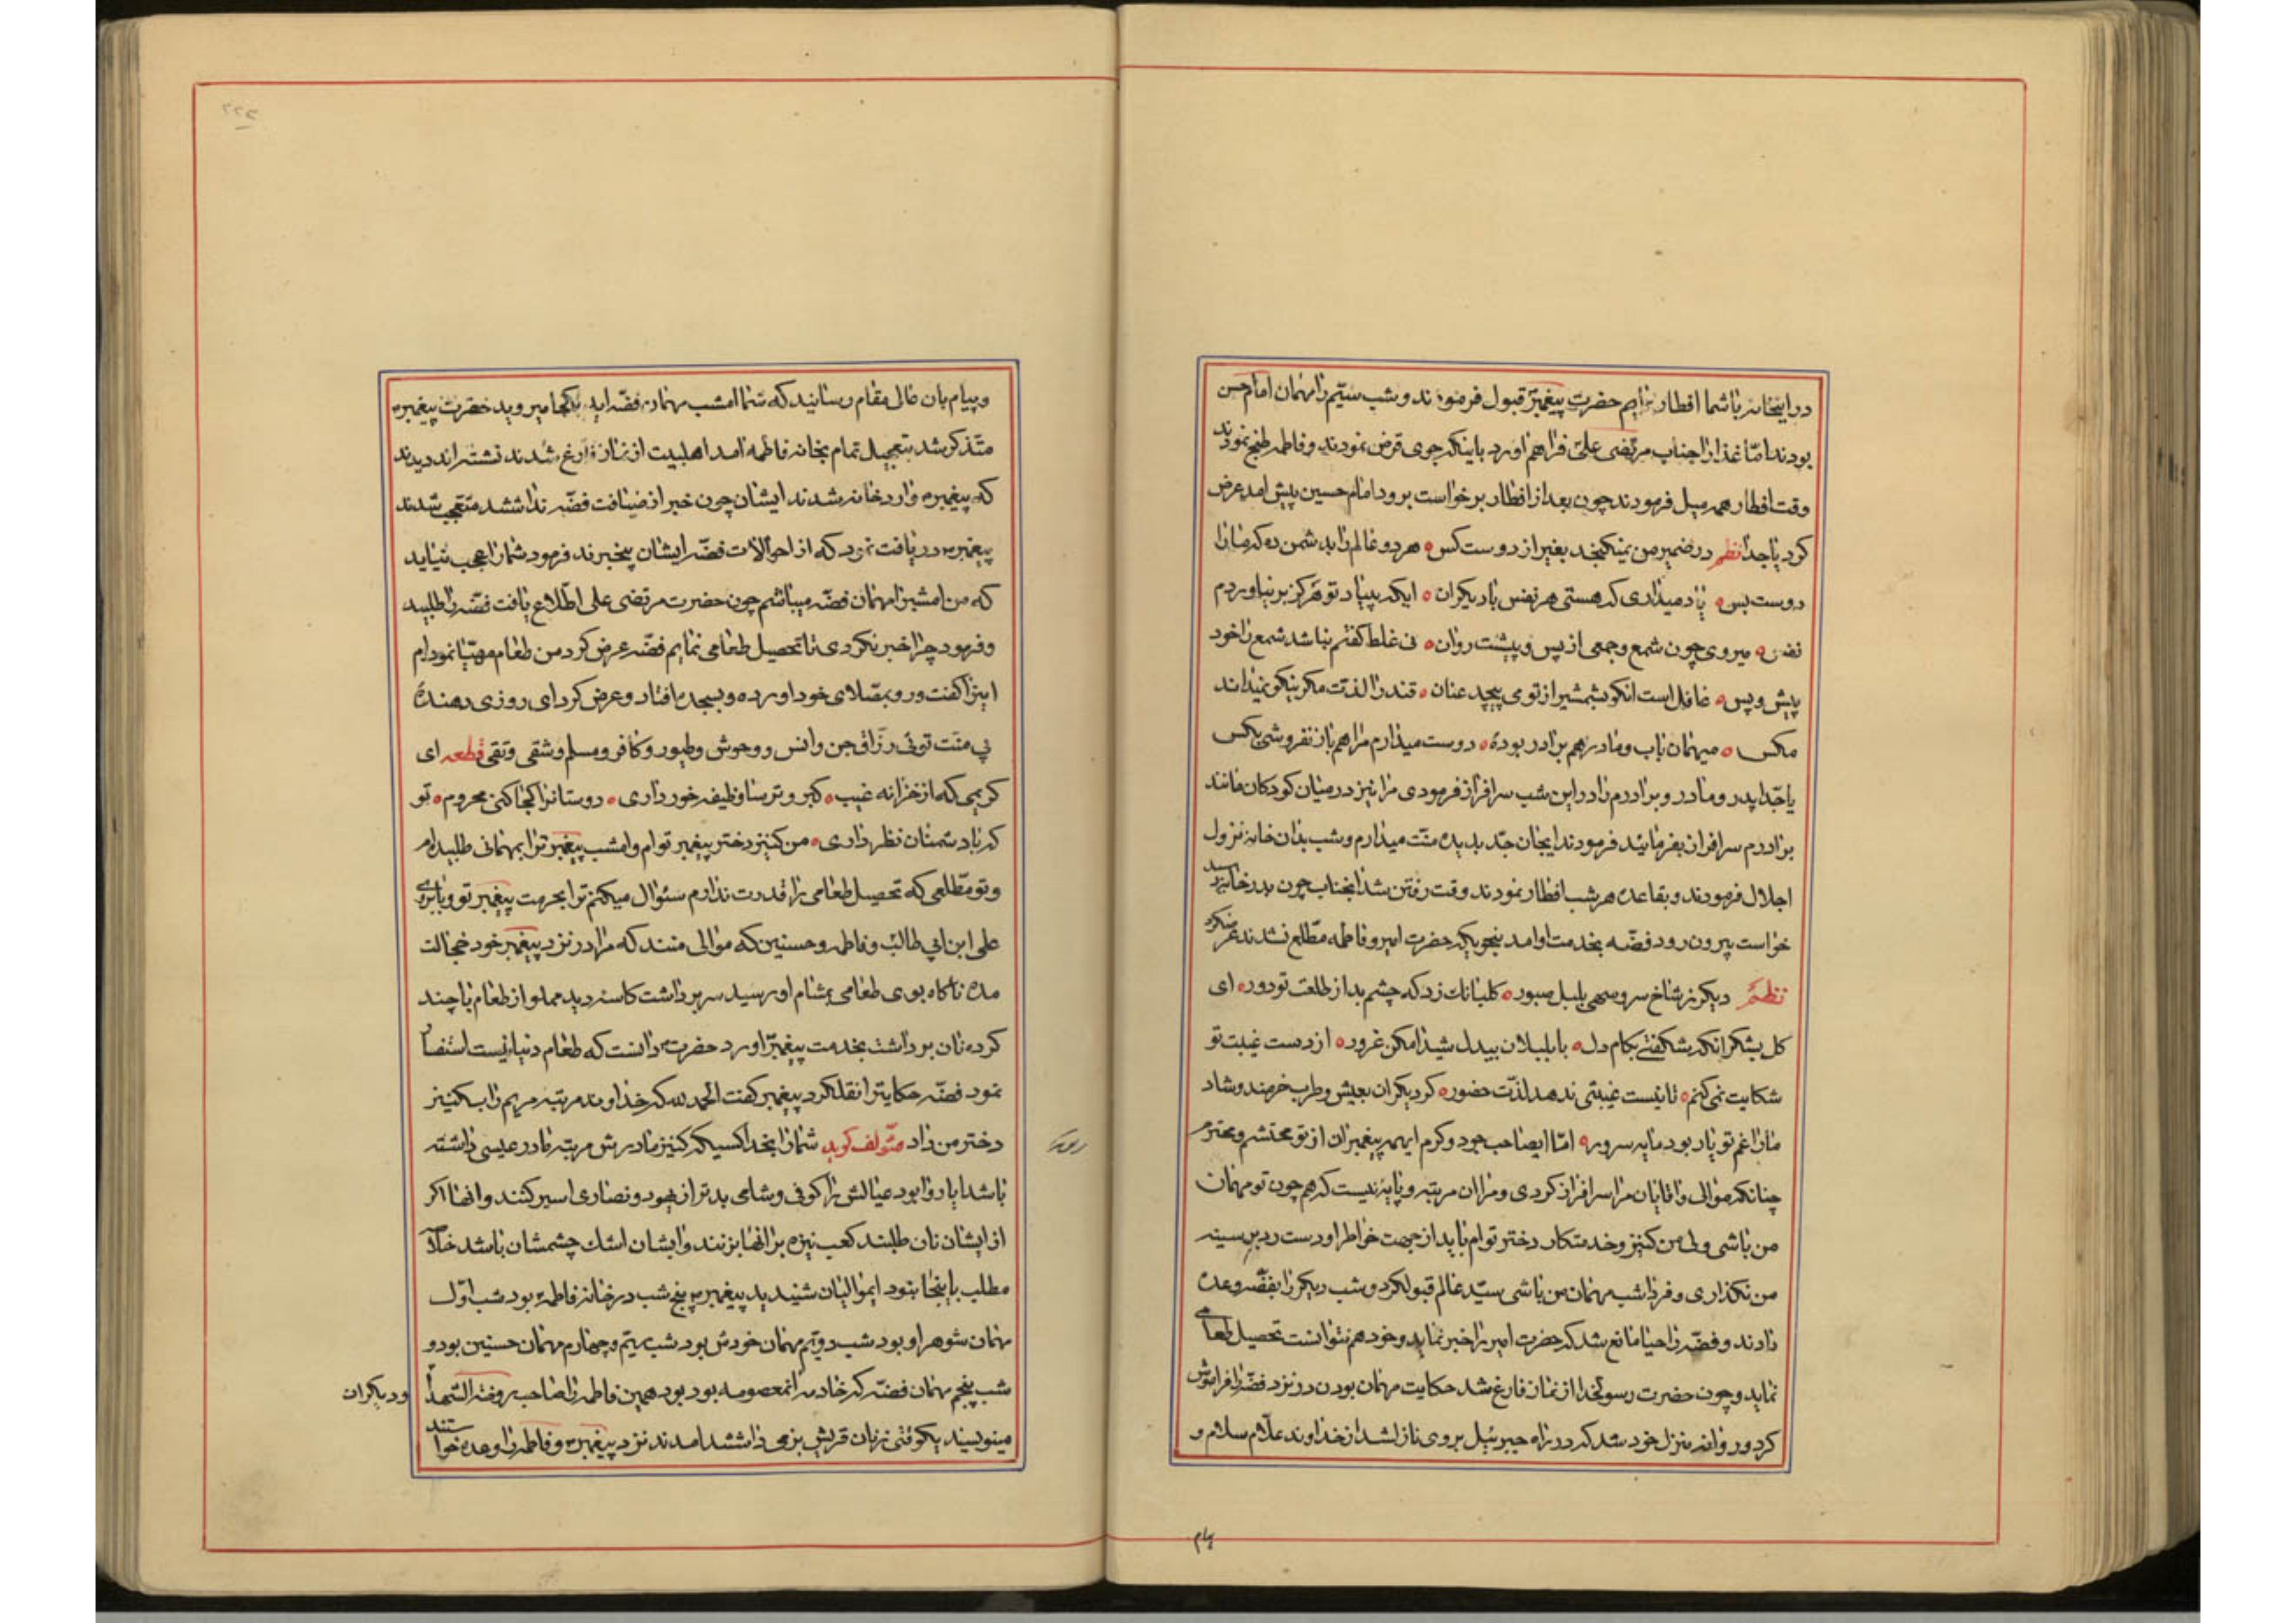 در اینخانه باشما افطار نمایم حضرت پیغمبر قبول فرمودند و شب سیّم را مهمان امام حسن
بودند امّا غذا را جناب مرتضی علی فراهم اورد باینکه جوی قرض نمودند و فاطمه طبخ نمودند
وقت افطار همه میل فرمودند چون بعد از افطار برخواست برود امام حسین پیش امد عرض
کرد یا جدا نظم در ضمیر من نمیکنجد بغیر از دوست کس هر دو عالم را بدشمن ده که ما را
دوست بس یاد میداری که هستی هر نفس با دیکران ایکه بییاد تو هرکز برنیاوردم
نفس میروی چون شمع و جمعی از پس و پیشت روان نی غلط کفتم نباشد شمع را خود
پیش و پس غافل است انکو بشمشیر از تو می پیچد عنان قند را لذت مکر نیکو نمیداند
مکس میهمان باب و مادر هم برادر بودهٔ دوست میدارم مرا هم باز نفروشی بکس
یا جدا پدر و مادر و برادرم را در این شب سرافراز فرمودی مرا نیز در میان کودکان مانند
برادرم سرافراز بفرمائید فرمودند ایجان جد بدیده منّت میدارم و شب بدان خانه نزول
اجلال فرمودند و بقاعده هر شب افطار نمودند وقت رفتن شد انجناب چون بدر خانه رسید
خواست بیرون رود فضّه بخدمت او امد بنحویکه حضرت امیر و فاطمه مطّلع نشدند عرضکرد
نظم دیکر ز شاخ سرو سهی بلبل صبور کلبانک زد که چشم بد از طلعت تو دور ای
کل بشکر انکه شکفتی بکام دل با بلبلان بیدل شیدا مکن غرور از دست غیبت تو
شکایت نمی کنم تا نیست غیبتی ندهد لذّت حضور کر دیکران بعیش و طرب خرمند و شاد
ما را غم تو یار بود مایه سرور امّا ایصاحب جود و کرم ایهمه پیغمبران از تو محتشم و محترم
چنانکه موالی و اقایان مرا سرافراز کردی و مرا ان مرتبه و پایه نیست که هم چون تو مهمان
من باشی ولی من کنیز و خدمتکار دختر توام باید از جهت خاطر او دست رد بر سینه
من نکذاری و فردا شب مهمان من باشی سیّد عالم قبولکرد و شب دیکر را بفضّه وعده
دادند و فضّه را حیا مانع شد که حضرت امیر را خبر نماید و خود هم نتوانست تحصیل طعامی
نماید و چون حضرت رسولخدا از نماز فارغ شد حکایت مهمان بودن در نزد فضّه را فراموش
کرد و روانه منزل خود شد که در راه جبرئیل بر وی نازلشد از خداوند علّام سلام و
پیام
و پیام بان عالی مقام رسانید که شما امشب مهمان فضّه اید بکجا میروید حضرت پیغمبر
متذکر شد بتعجیل تمام بخانه فاطمه امد اهلبیت از نماز فارغ شدند نشسته اند دیدند
که پیغمبر وارد خانه شدند ایشان چون خبر از ضیافت فضّه نداشتند متعجب شدند
پیغمبر دریافت نمود که از احوالات فضّه ایشان بیخبرند فرمود شما را عجب نیاید
که من امشب را مهمان فضّه میباشم چون حضرت مرتضی علی اطّلاع یافت فضّه را طلبید
و فرمود چرا خبر نکردی تا تحصیل طعامی نمایم فضّه عرض کرد من طعام مهیّا نموده ام
اینرا کفت و رو بمصّلای خود اورده و بسجده افتاد و عرض کرد ای روزی دهندهٔ
بی منّت توئی رزّاق جن و انس و وحوش و طیور و کافر و مسلم و شقی و تقی قطعه ای
کریمی که از خزانه غیب کبر و ترسا وظیفه خور داری دوستانرا کجا کنی محروم تو
که با دشمنان نظر داری من کنیز دختر پیغمبر توام و امشب پیغمبر ترا بمهمانی طلبیده ام
و تو مطّلعی که تحصیل طعامی را قدرت ندارم سئوال میکنم ترا بحرمت پیغمبر تو و بابروی
علی ابن ابی طالب و فاطمه و حسنین که موالی منند که مرا در نزد پیغمبر خود خجالت
مده ناکاه بوی طعامی بمشام او رسید سر برداشت کاسه دید مملو از طعام با چند
کرده نان برداشت بخدمت پیغمبر اورد حضرت دانست که طعام دنیا نیست استفسار
نمود فضّه حکایترا نقلکرد پیغمبر کفت الحمد لله که خداوند مرتبه مریم را بکنیز
دختر من داد مؤلف کوید شما را بخدا کسیکه کنیز مادرش مرتبه مادر عیسی داشته
باشد ایا روا بود عیالش را کوفی و شامی بدتر از یهود و نصاری اسیر کنند و انها اکر
از ایشان نان طلبند کعب نیزه بر انها بزنند و ایشان اشک چشمشان باشد خلاصه
مطلب باینجا بنود ایموالیان شنیدید پیغمبر پنج شب در خانه فاطمه بود شب اوّل
مهمان شوهر او بود شب دویّم مهمان خودش بود شب سیّم و چهارم مهمان حسنین بود و
شب پنجم مهمان فضّه که خادمه انمعصومه بود بود همین فاطمه را صاحب روضة الشهدا
و دیکران
مینویسند یکوقتی زنان قریش بزمی داشتند امدند نزد پیغمبر و فاطمه را وعده خواستند